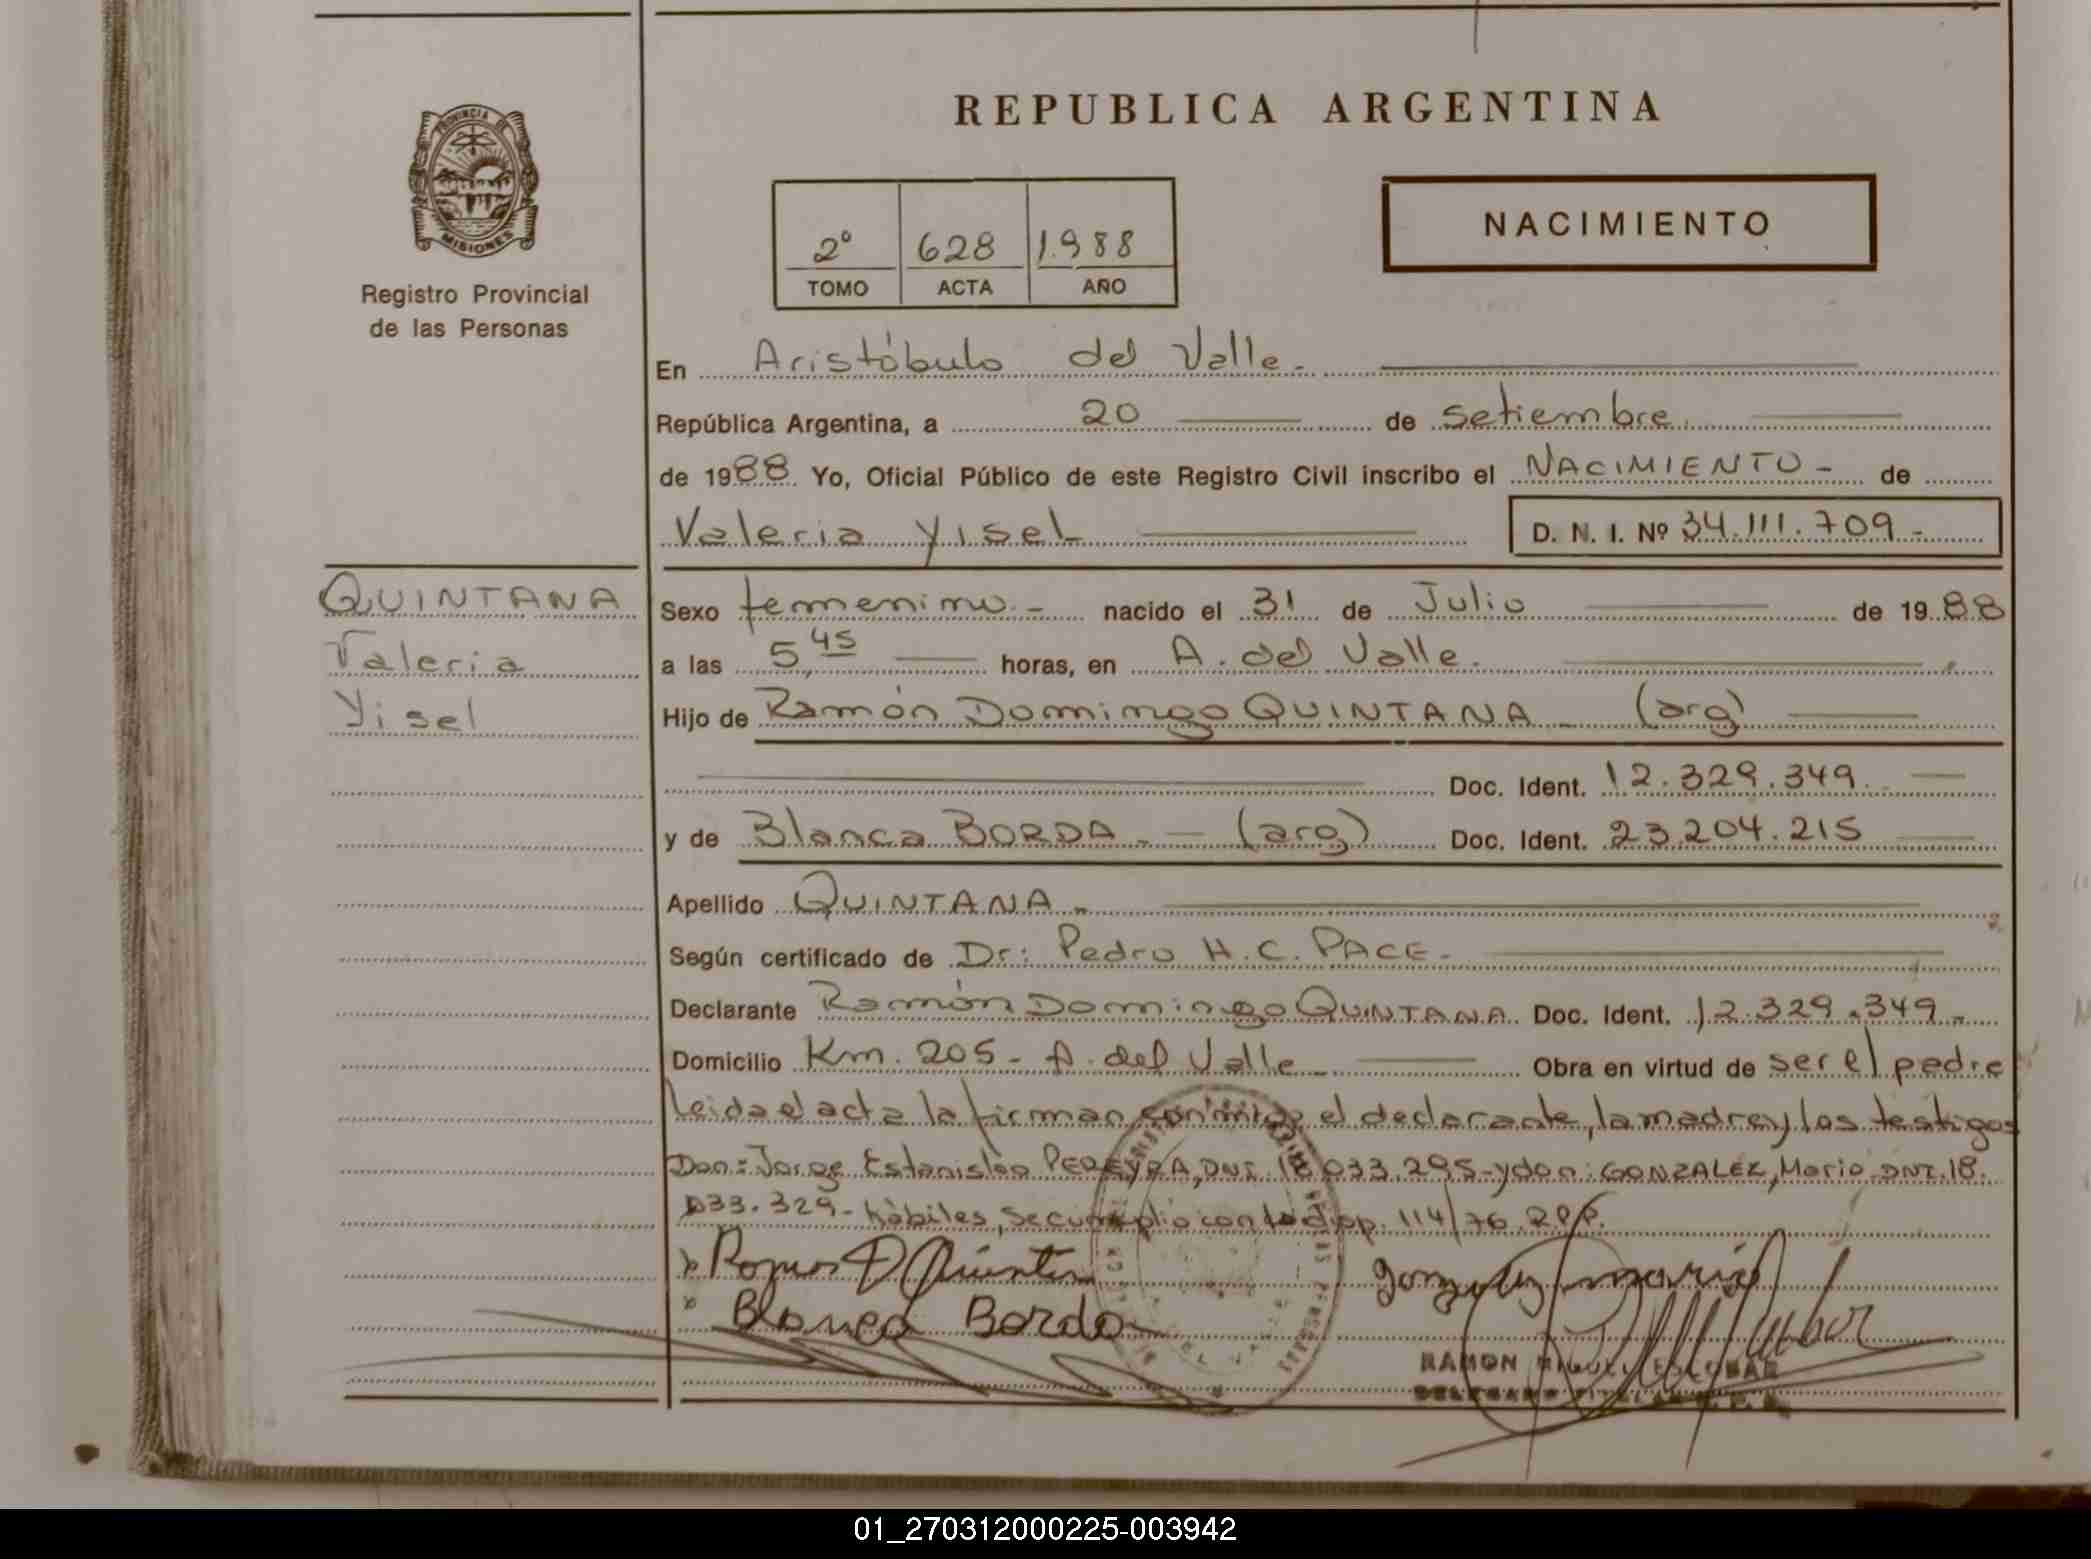 REPUBLICA ARGENTINA
PROVINCIA DE
MISIONES
Registro Provincial
de las Personas
2º 628 1.988
TOMO ACTA AÑO
NACIMIENTO
En Aristóbulo del Valle.-
República Argentina, a 20 de setiembre.
de 1988 Yo, Oficial Público de este Registro Civil inscribo el NACIMIENTO - de
Valeria Yisel
D. N. I. Nº 34.111.709.-
QUINTANA
Valeria
Yisel
Sexo femenino.- nacido el 31 de Julio de 1988
a las 5,45 horas, en A. del Valle.
Hijo de Ramón Domingo QUINTANA - (arg)
Doc. Ident. 12.329.349.
y de Blanca BORDA.- (arg) Doc. Ident. 23.204.215
Apellido QUINTANA.-
Según certificado de Dr: Pedro H.C. PACE.-
Declarante Ramón Domingo QUINTANA Doc. Ident. 12.329.349.-
Domicilio Km. 205 - A. del Valle - Obra en virtud de ser el padre
leida el acta la firman conmigo el declarante, la madre y los testigos
Don: Jorge Estanislao PEREYRA, DNI. 18.033.295 - y don: GONZALEZ, Mario DNI. 18.
033.329 - hàbiles, se cumplio con la disp. 114/76. RPP.
Blanca Borda
RAMON MIGUEL ESCOBAR
DELEGADO TITULAR
01_270312000225-003942